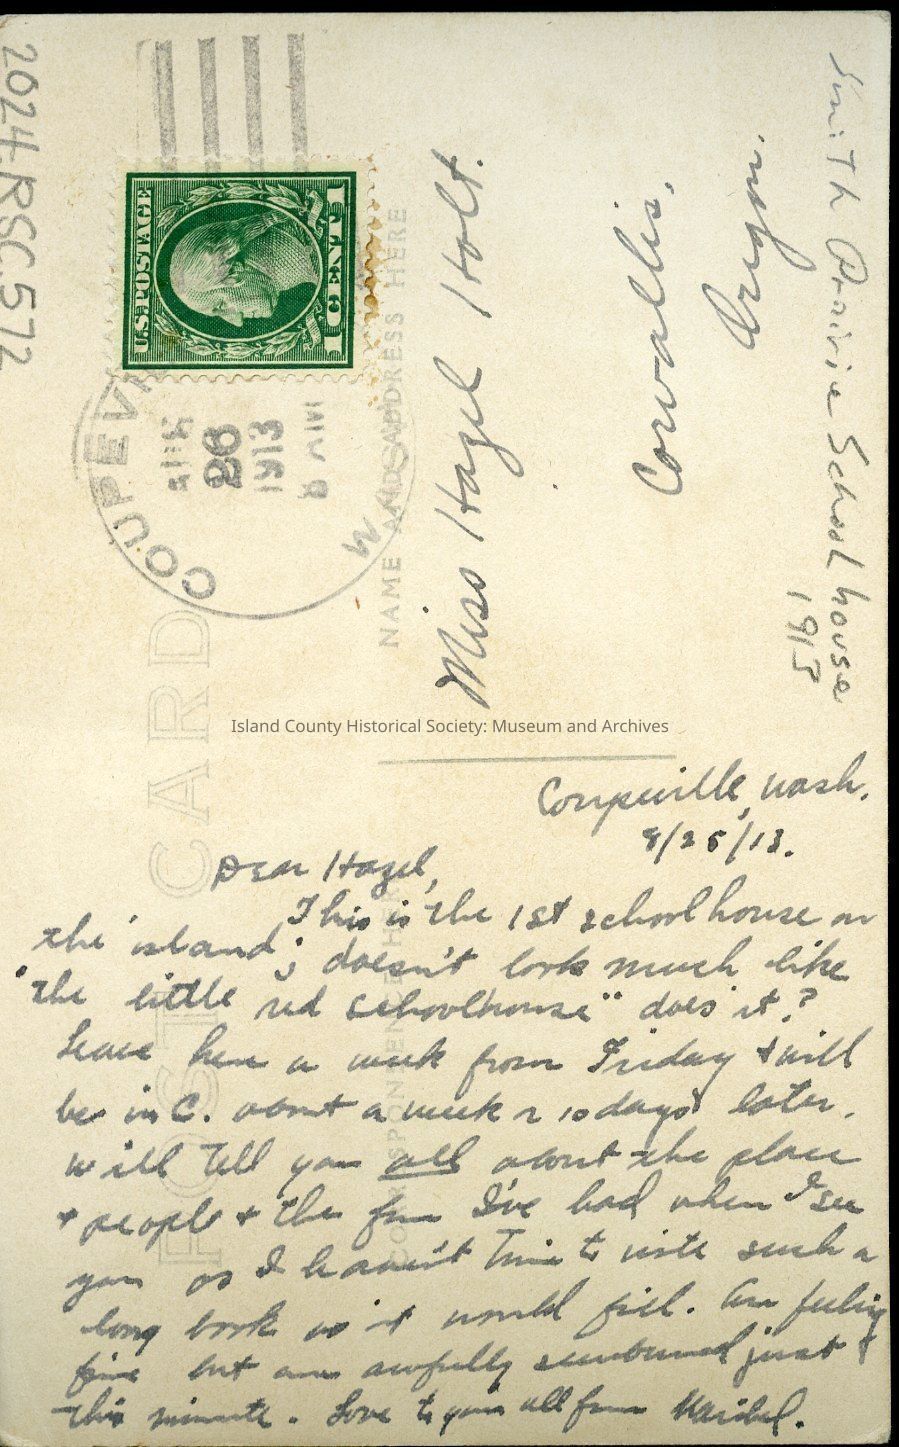 2024.RSC.572
U.S. POSTAGE
1 CENT 1
COUPEVI
AUG
26
1913
8 AM
W
POST CARD
NAME AND ADDRESS HERE
CORRESPONDENCE HERE
Miss Hazel Holt.
Corvallis,
Oregon.
Smith Prairie School house
1913
Island County Historical Society: Museum and Archives
Coupeville, Wash.
8/25/13.
Dear Hazel,
This is the 1st schoolhouse on
the island; doesn't look much like
"the little red schoolhouse" does it?
Leave here a week from Friday & will
be in C. about a week r 10 days later.
Will tell you all about the place
& people & the fun I've had when I see
you as I haven't time to write such a
long book as it would fill. Am feeling
fine but am awfully sunburned just
this minute. Love to you all from Maribel.